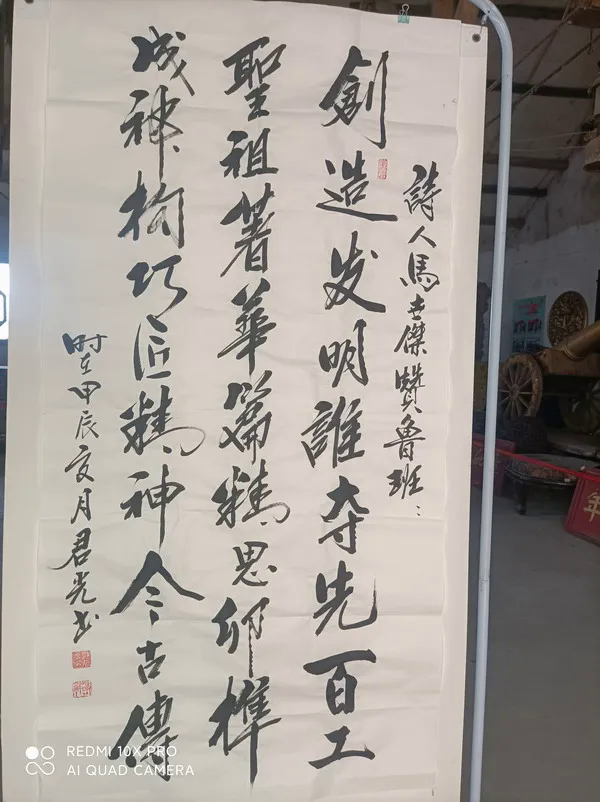 詩人馬世傑贊魯班：
創造发明誰夺先百工
聖祖著華篇精思卯榫
成神构巧匠精神今古傳
时在甲辰夏月君光书
年
REDMI 10X PRO
AI QUAD CAMERA